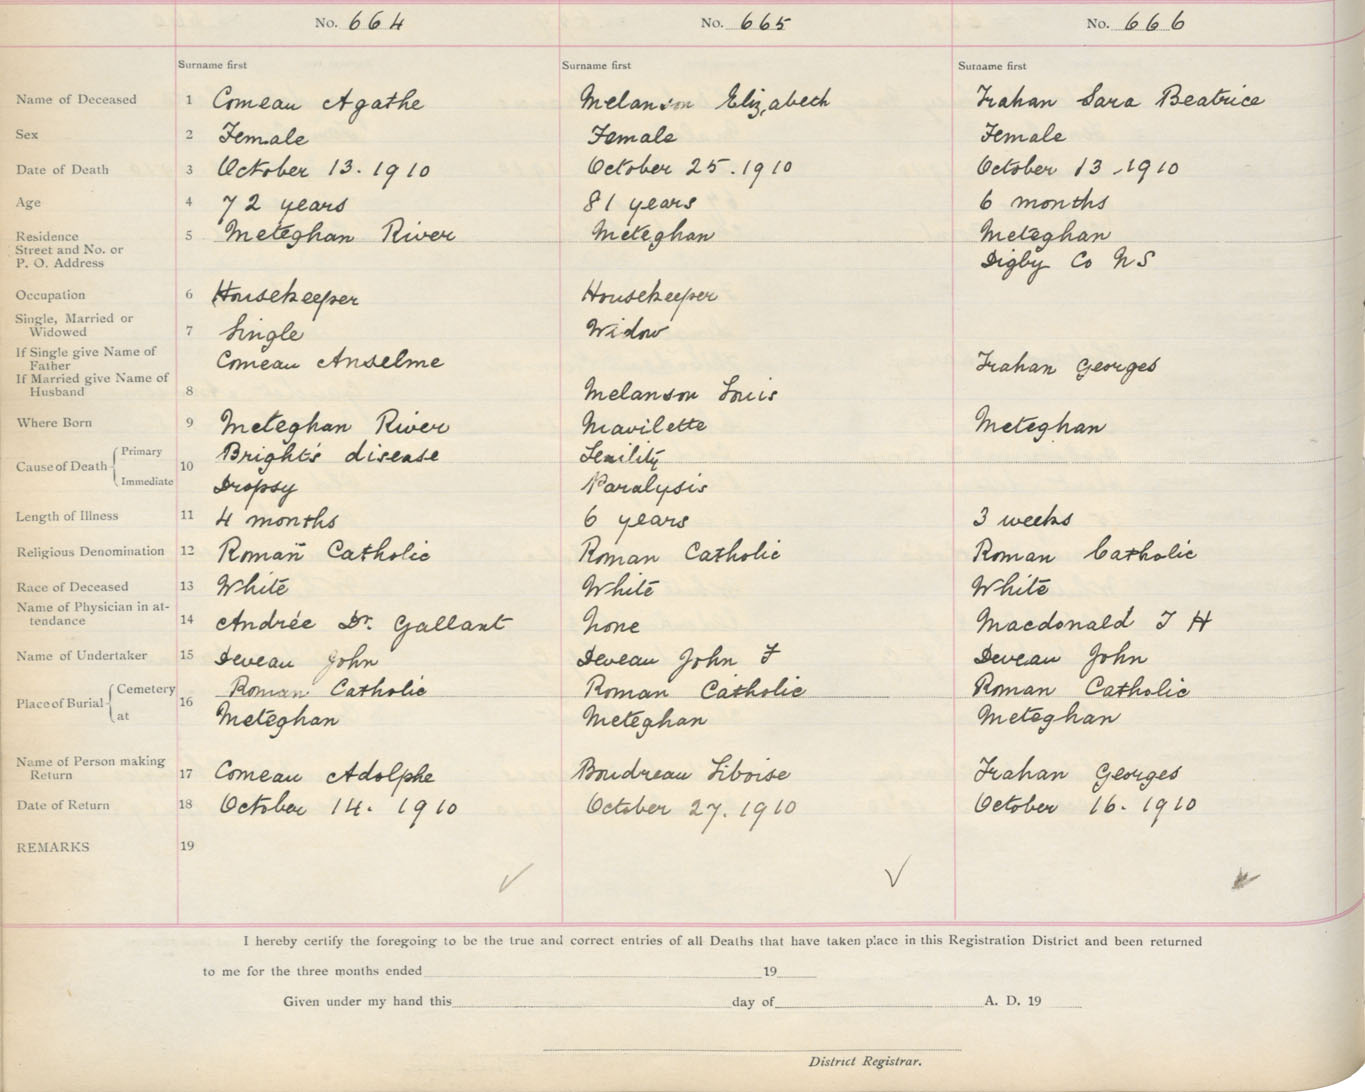 No. 664 No. 665 No. 666
Surname first Surname first Surname first
Name of Deceased 1 Comeau Agathe Melanson Elizabeth Trahan Sara Beatrice
Sex 2 Female Female Female
Date of Death 3 October 13. 1910 October 25. 1910 October 13. 1910
Age 4 72 years 81 years 6 months
Residence 5 Meteghan River Meteghan Meteghan
Street and No. or
P. O. Address Digby Co N S
Occupation 6 Housekeeper Housekeeper
Single, Married or
Widowed 7 Single Widow
If Single give Name of
Father Comeau Anselme Trahan Georges
If Married give Name of
Husband 8 Melanson Louis
Where Born 9 Meteghan River Mavilette Meteghan
Cause of Death 10 Primary Bright's disease Senility
Immediate Dropsy Paralysis
Length of Illness 11 4 months 6 years 3 weeks
Religious Denomination 12 Roman Catholic Roman Catholic Roman Catholic
Race of Deceased 13 White White White
Name of Physician in at-
tendance 14 Andrée Dr. Gallant None Macdonald T H
Name of Undertaker 15 Deveau John Deveau John F Deveau John
Place of Burial 16 Cemetery Roman Catholic Roman Catholic Roman Catholic
at Meteghan Meteghan Meteghan
Name of Person making
Return 17 Comeau Adolphe Boudreau Liboise Trahan Georges
Date of Return 18 October 14. 1910 October 27. 1910 October 16. 1910
REMARKS 19
I hereby certify the foregoing to be the true and correct entries of all Deaths that have taken place in this Registration District and been returned
to me for the three months ended 19
Given under my hand this day of A. D. 19
District Registrar.